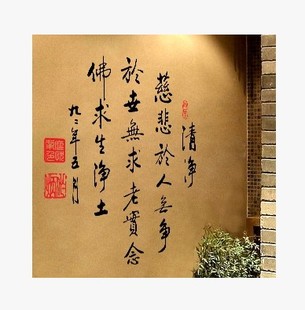 清净
慈悲於人無争
於世無求老實念
佛求生净土
九二年五月